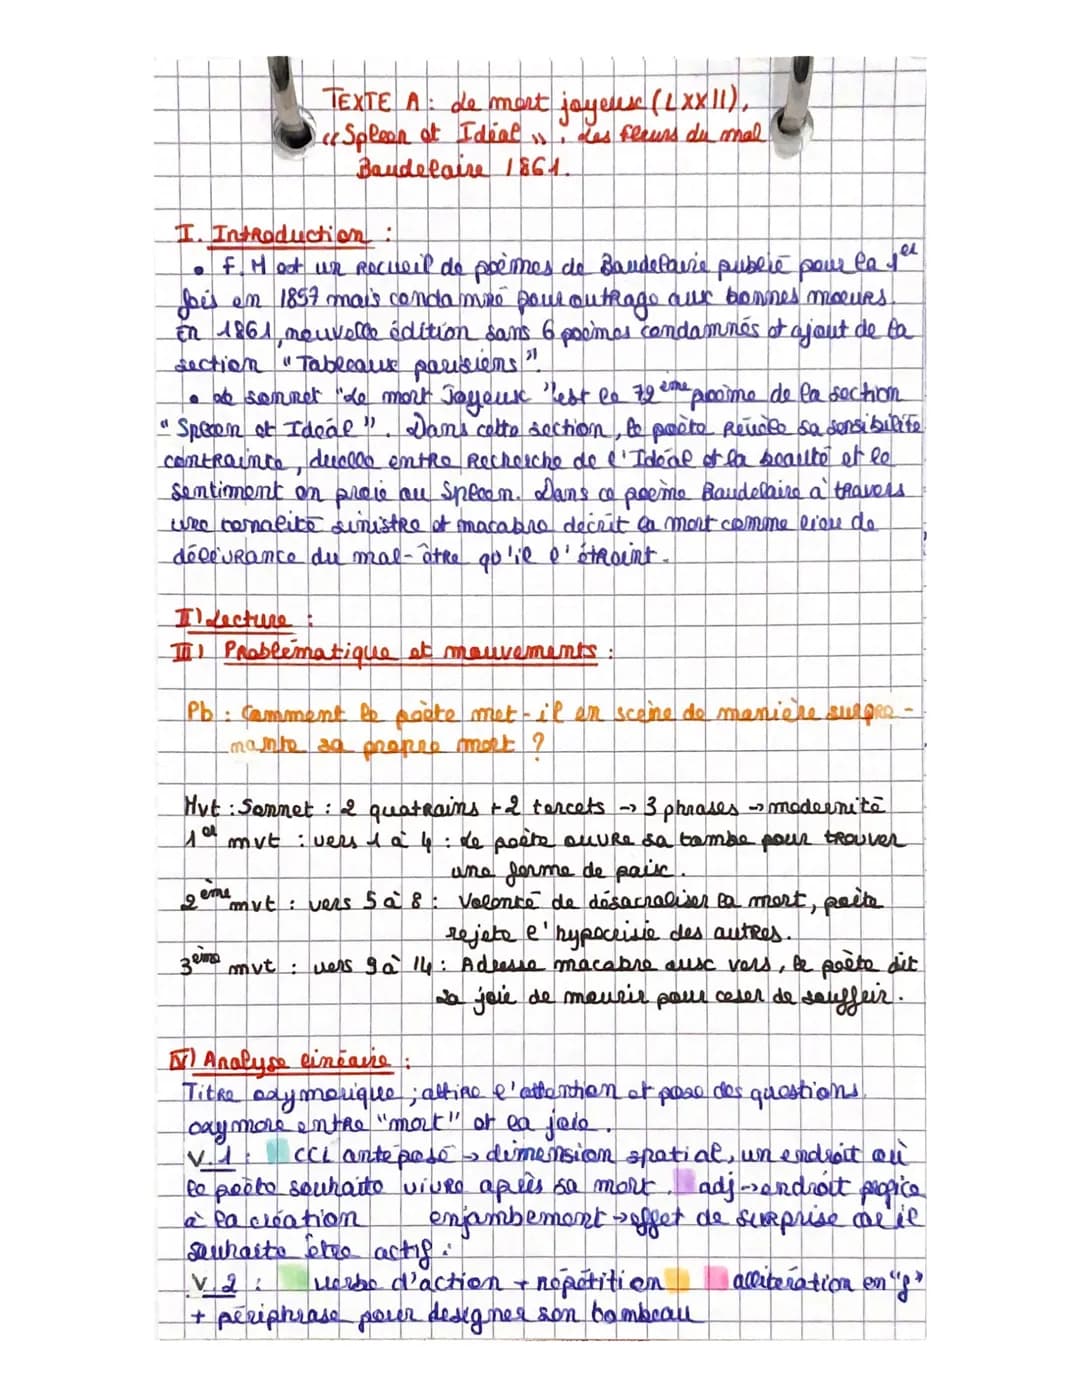 TEXTE A : Le mort joyeux (LXXII),
"Spleen et Idéal", Les fleurs du mal
Baudelaire 1861.
I. Introduction :
• F.M est un recueil de poèmes de Baudelaire publié pour la 1er
fois en 1857 mais condamné pour outrage aux bonnes moeurs.
En 1861, nouvelle édition sans 6 poèmes condamnés et ajout de la
section "Tableaux parisiens".
• Le sonnet "Le mort Joyeux" est le 72ème poème de la section
"Spleen et Idéal". Dans cette section, le poète révèle sa sensibilité
contrainte, duelle entre recherche de l'Idéal et la beauté et le
sentiment en proie au Spleen. Dans ce poème Baudelaire à travers
une tonalité sinistre et macabre décrit la mort comme lieu de
délivrance du mal-être qu'il l'étreint.
II) Lecture :
III) Problématique et mouvements :
Pb : Comment le poète met-il en scène de manière surpre-
nante sa propre mort ?
Mvt : Sonnet : 2 quatrains + 2 tercets → 3 phrases → modernité
1er mvt : vers 1 à 4 : Le poète ouvre sa tombe pour trouver
une forme de paix.
2ème mvt : vers 5 à 8 : Volonté de désacraliser la mort, poète
rejete l'hypocrisie des autres.
3ème mvt : vers 9 à 14 : Adresse macabre aux vers, le poète dit
sa joie de mourir pour cesser de souffrir.
IV) Analyse linéaire :
Titre oxymorique ; attire l'attention et pose des questions.
oxymore entre "mort" et la joie.
V.1 : CCL antéposé → dimension spatial, un endroit où
le poète souhaite vivre après sa mort. adj → endroit propice
à la création enjambement → effet de surprise car il
souhaite être actif.
V.2 : verbe d'action + répétition allitération en "f"
+ périphrase pour designer son tombeau